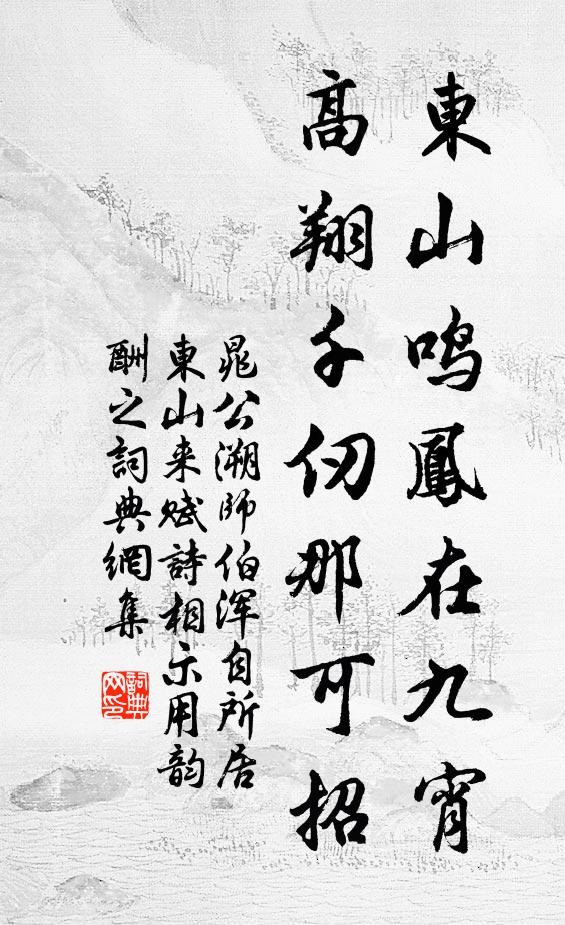 東山鳴鳳在九宵
高翔千仞那可招
晁公溯師伯浑自所居
東山来赋詩相示用韵
酬之詞典網集
詞典
网印